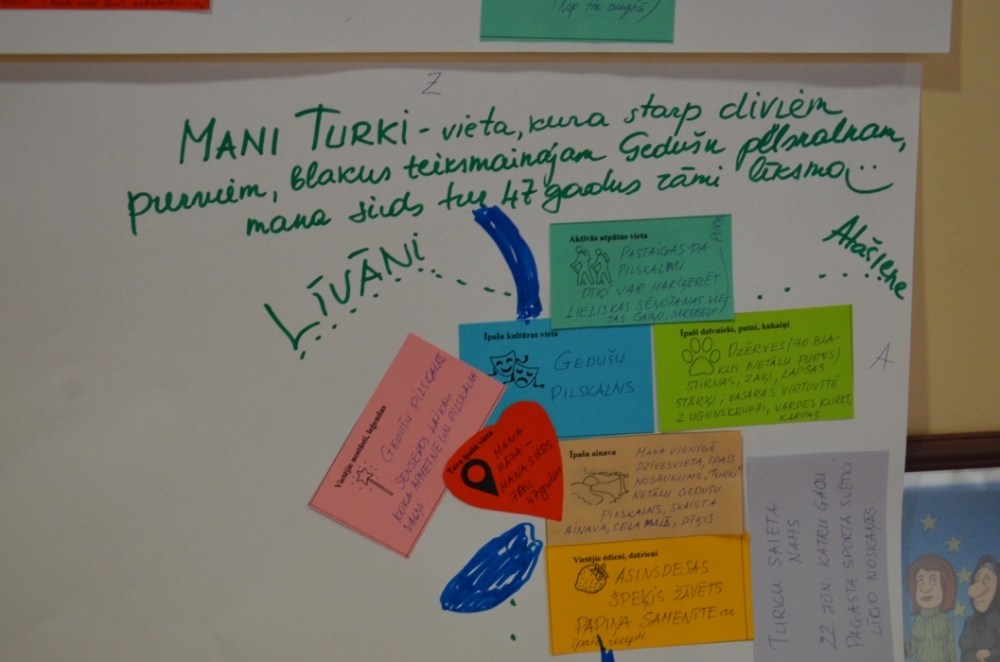 (top tie augtā)
Z
MANI TURKI - vieta, kura starp diviem
purviem, blakus teiksmainajam Gedušu pilskalnam,
mana sirds tur 47 gadus rāmi līksmo
LĪVĀNI
Atašiene
A
Aktīvās atpūtas vieta
PASTAIGAS PA PURV
PILSKALNU
DĪĶĪ VAR MAKŠĶERĒT
LIELISKAS SĒŅOŠANAS VIE
TAS
Īpaša kultūras vieta
GEDUŠU
PILSKALNS
Īpaši dzīvnieki, putni, kukaiņi
DZĒRVES/70 BLA-
KUS NETĀLU PURVS/
STIRNAS, ZAĶI, LAPSAS
STĀRĶI, VASARAS VIRTUVĪTĒ
2 UGUNSKRUPJI, VARDES KURKST,
KARPAS
Vietējie nostāsti, leģendas
GEDUŠU PILSKALNS
SENSENOS LAIKOS
KOKA APMETNE UN PILSKALNA
VAĻŅI
Tava īpašā vieta
MANA
MĀJA -
MANA SIRDS
JAU
47 gadus
Īpaša ainava
MANA VIENĪGĀ
DZĪVESVIETA, ĪPAŠS
NOSAUKUMS, "TURKI"
NETĀLU GEDUŠU
PILSKALNS, SKAISTA
AINAVA, CEĻA MALĀ, DĪĶIS
Vietējie ēdieni, dzērieni
ASINSDESAS
SPEĶIS ŽĀVĒTS
PAPIŅA SAMENĪTTE ar
īpašu recepti
TURKU SAIETA
NAMS
22. JŪN KATRU GADU
PAGASTA SPORTA SVĒTKI
LĪGO NOSKAŅĀS